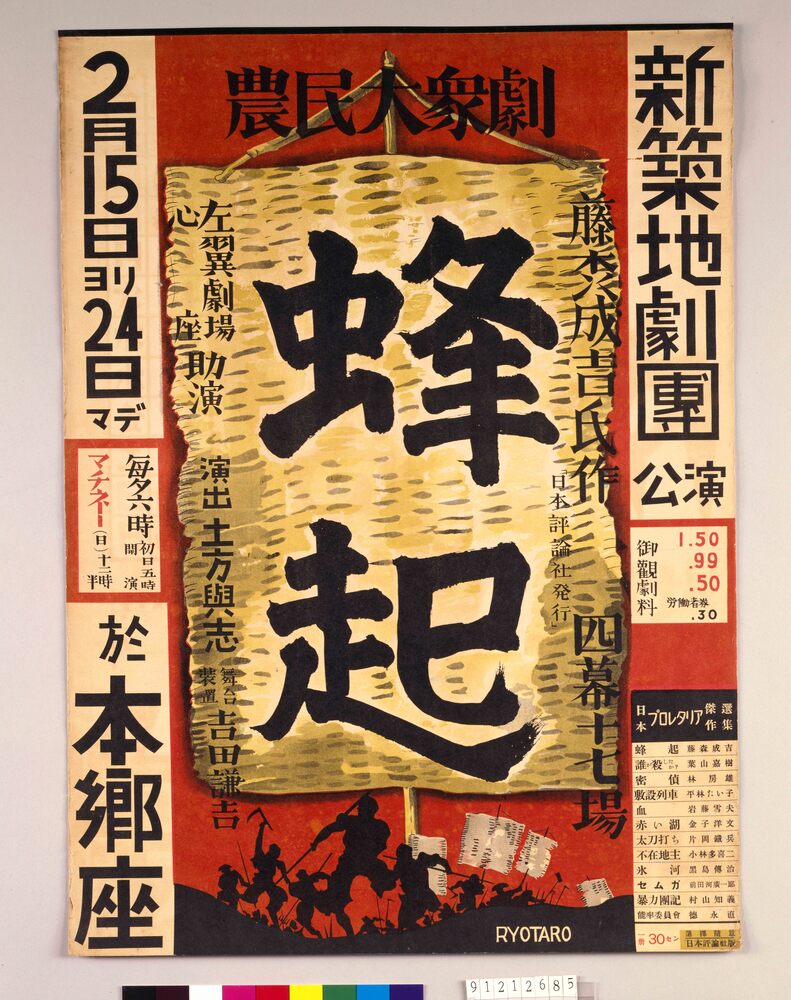 農民大衆劇
新築地劇團
公演
御觀劇料
1.50
.99
.50
労働者券
.30
藤森成吉氏作
四幕十七場
「日本評論社発行」
蜂起
左翼劇場
心座
助演
演出 土方與志
舞台
装置
吉田謙吉
2月15日ヨリ24日マデ
毎夕六時
初日五時
開演
マチネー(日)十二時半
於
本鄉座
日本プロレタリア傑作選集
蜂起 藤森成吉
誰が殺したか? 葉山嘉樹
密偵 林房雄
敷設列車 平林たい子
血 岩藤雪夫
赤い湖 金子洋文
太刀打ち 片岡鐵兵
不在地主 小林多喜二
氷河 黒島傳治
セムガ 前田河廣一郎
暴力團記 村山知義
能率委員會 德永直
一冊 30セン
選擇隨意
日本評論社版
RYOTARO
91212685